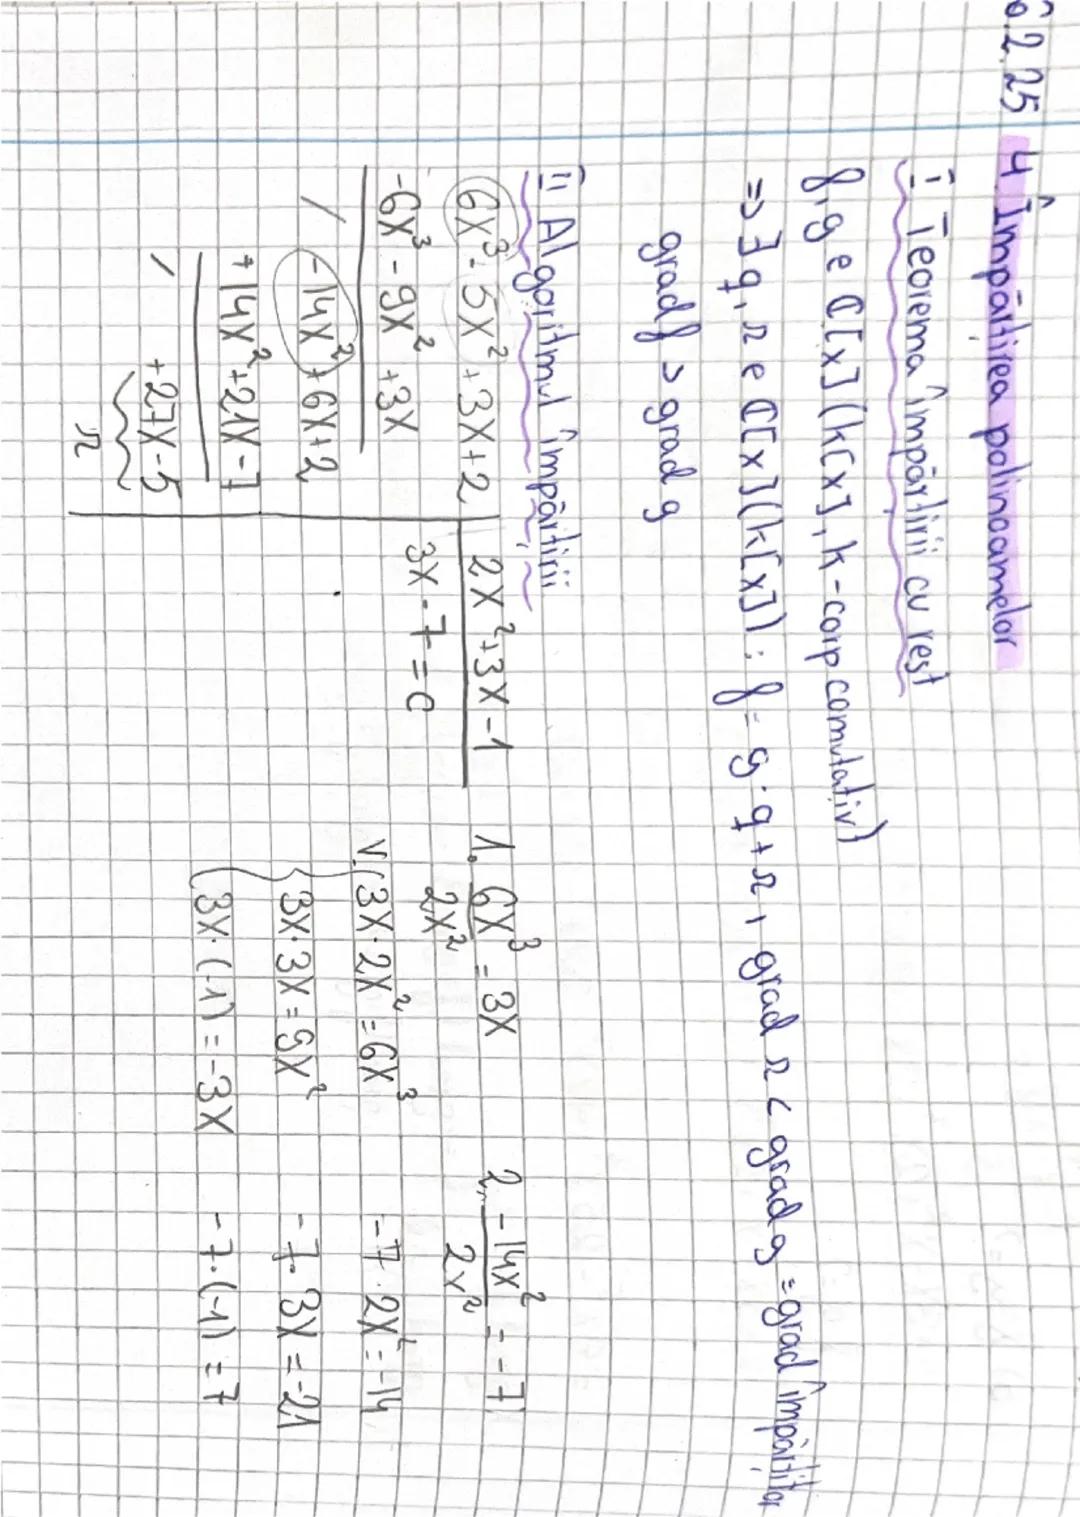 6.2.25 4. Împărțirea polinoamelor
I Teorema împărțirii cu rest
f, g ∈ ℂ[x] (k[x], k-corp comutativ)
=> ∃ q, r ∈ ℂ[x] (k[x]); f = g·q + r, grad r < grad g = grad împărțitor
grad f > grad g
II Algoritmul împărțirii
6x³ - 5x² + 3x + 2 | 2x² + 3x - 1
-6x³ - 9x² + 3x | 3x - 7 = C
/ -14x² + 6x + 2
+14x² + 21x - 7
/ +27x - 5
r
1. 6x³/2x² = 3x
V. 3x·2x² = 6x³
3x·3x = 9x²
3x·(-1) = -3x
2. -14x²/2x² = -7
-7·2x² = -14
-7·3x = -21
-7·(-1) = 7